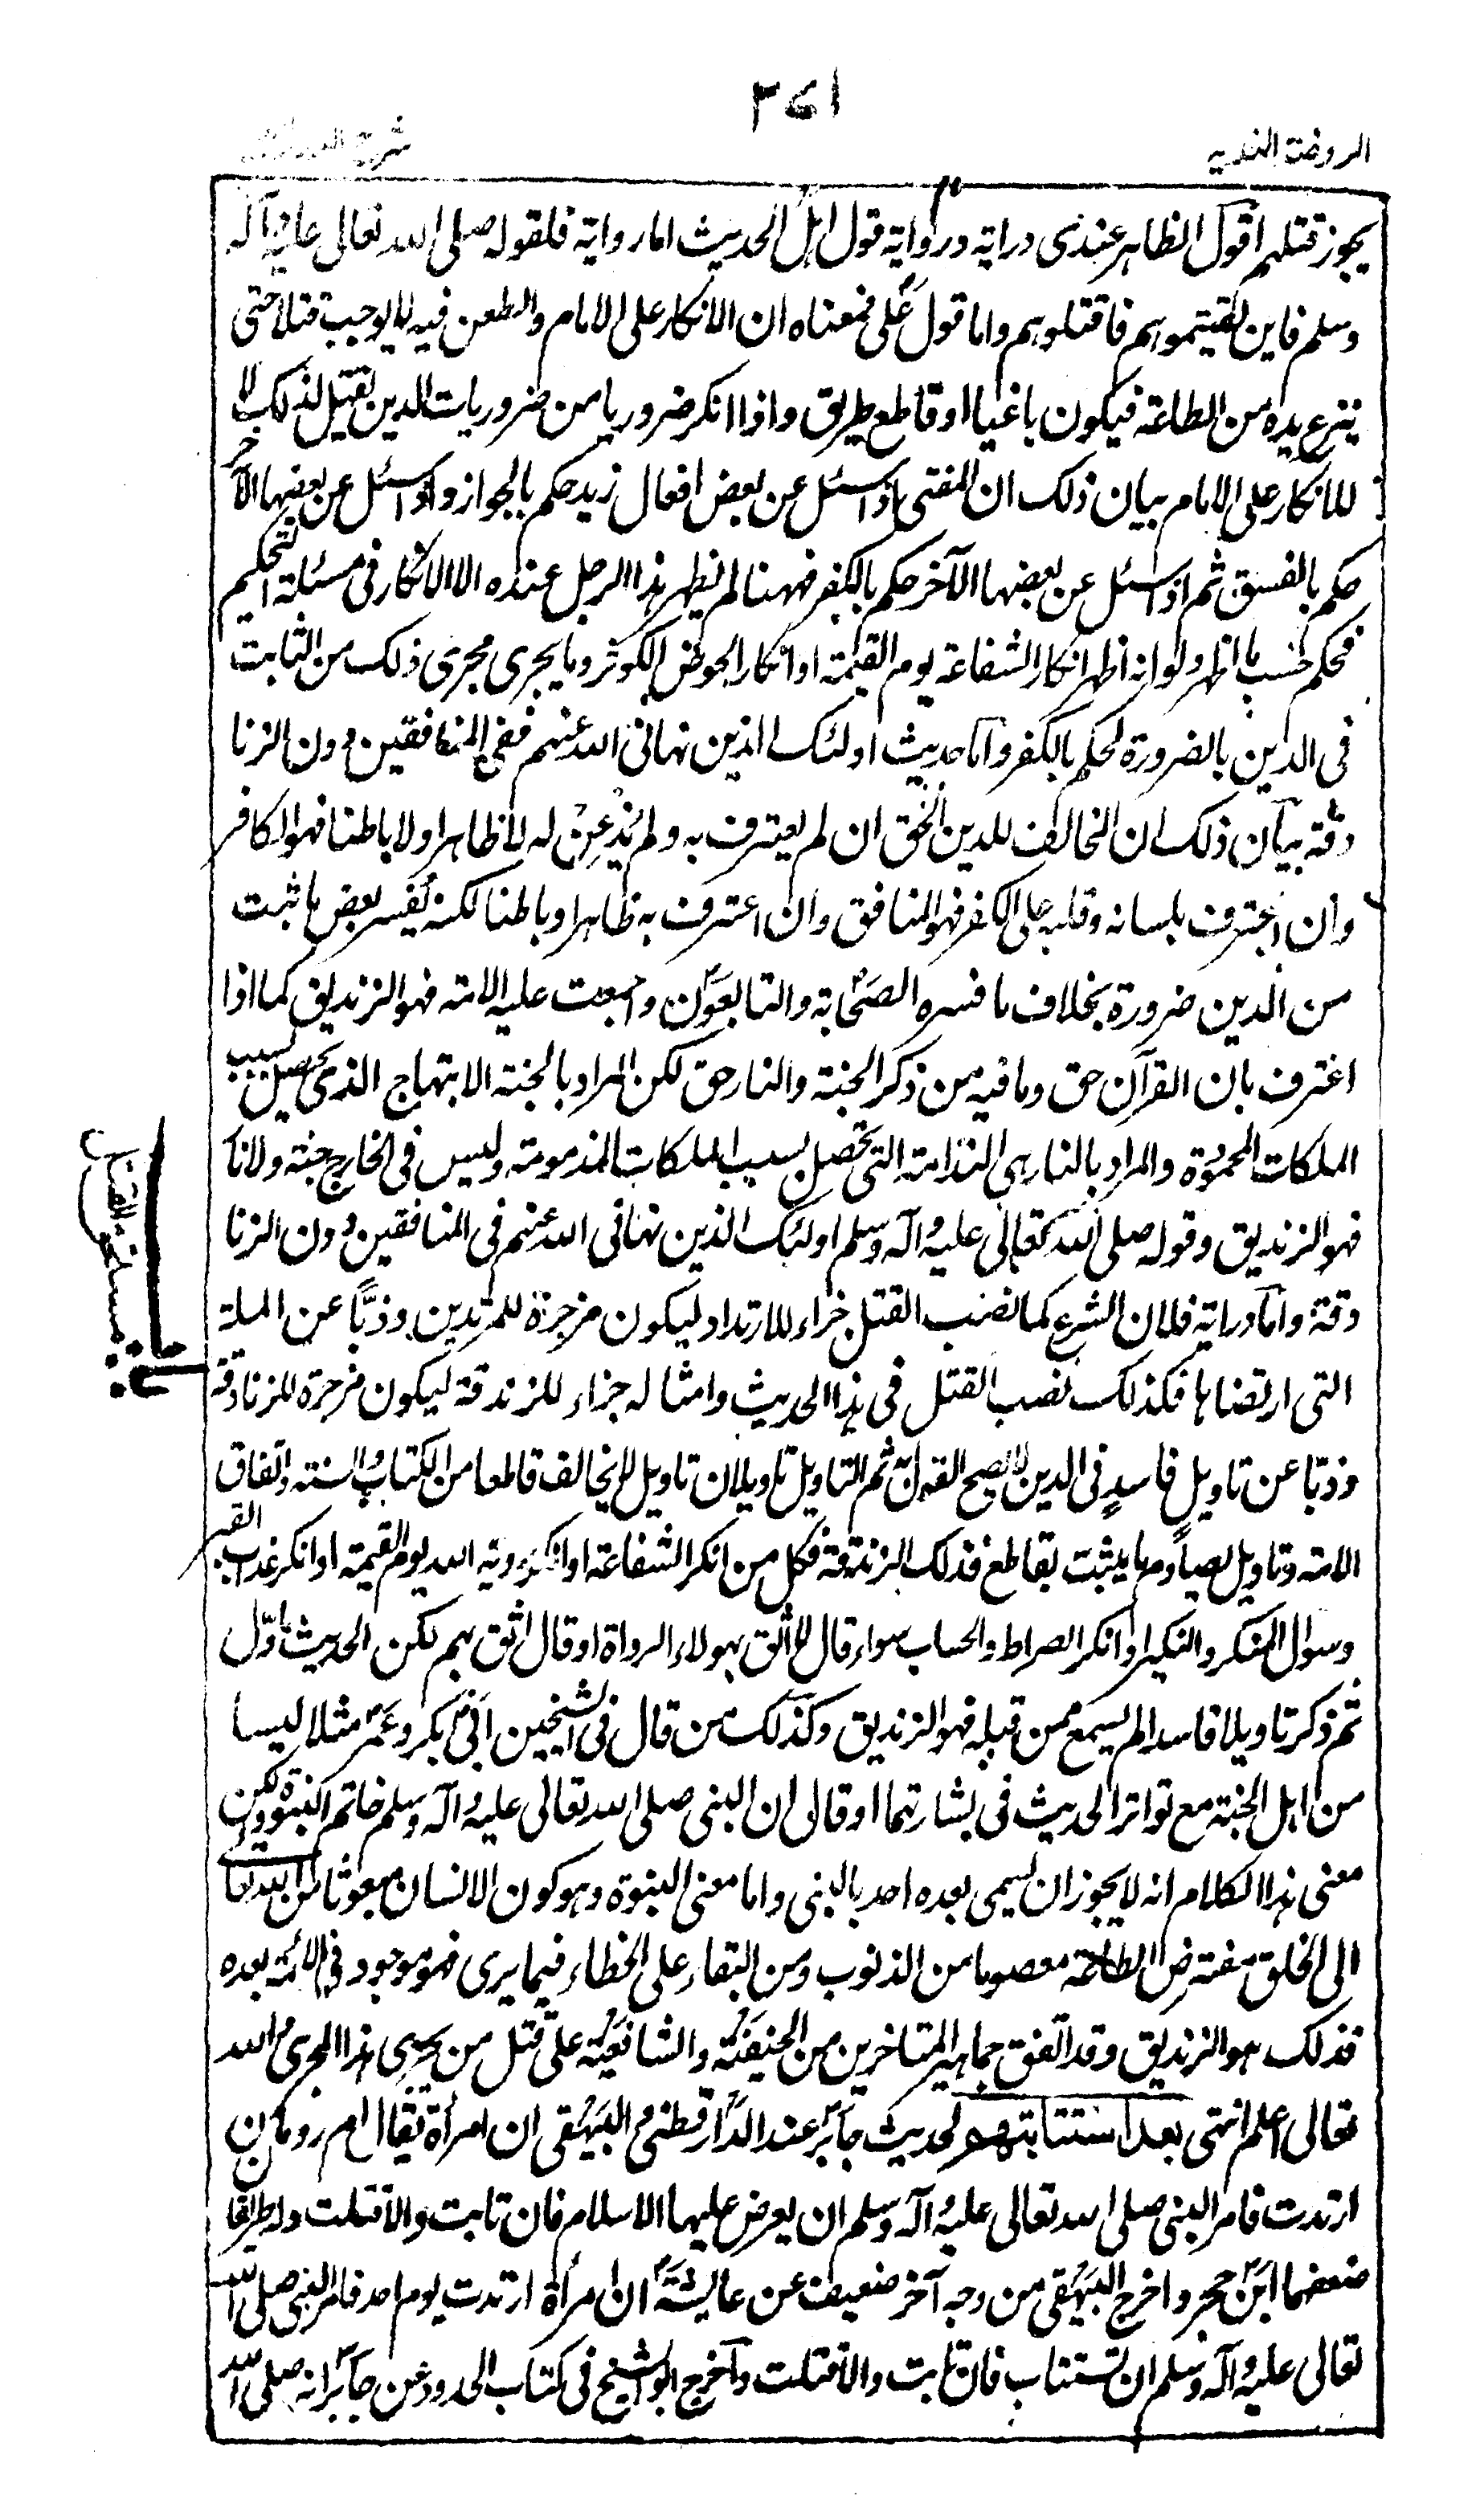 ٣٤١
الروضة الندية
شرح
يجوز قتلهم اقول الظاهر عندى دراية ورواية قول اہل الحديث اما رواية فلقوله صلى الله تعالى عليہ وآلہ
وسلم فاين لقيتموہم فاقتلوہم واما قول على فمعناه ان الانكار على الامام والطعن فيه لا يوجب قتلا حتى
ينزع يده من الطاعة فيكون باغيا او قاطع طريق واذا انكر ضروريا من ضروريات الدين يقتل لذلك لا
للانكار على الامام بيان ذلك ان المفتى اذا سئل عن بعض افعال زيد حكم بالجواز واذا سئل عن بعضہا الآخر
حكم بالفسق ثم اذا سئل عن بعضہا الآخر حكم بالكفر فہہنا لم يظہر ہذا الرجل عنده الا الانكار فى مسئلة التحكيم
فحكم حسب ما اظہر ولو انه اظہر انكار الشفاعة يوم القيمة او انكار الحوض الكوثر وما يجرى مجرى ذلك من الثابت
فى الدين بالضرورة لحكم بالكفر واما حديث اولئك الذين نہانى الله عنہم ففى المنافقين دون الزنا
دقة بيان ذلك ان المخالف للدين الحق ان لم يعترف به ولم يُذعِنْ له لا ظاہرا ولا باطنا فہو الكافر
وان اعترف بلسانه وقلبه على الكفر فہو المنافق وان اعترف به ظاہرا وباطنا لكنه يفسر بعض ما ثبت
من الدين ضرورة بخلاف ما فسره الصحابة والتابعون واجمعت عليه الامة فہو الزنديق كما اذا
اعترف بان القرآن حق وما فيه من ذكر الجنة والنار حق لكن المراد بالجنة الابتہاج الذى يحصل بسبب
الملكات المحمودة والمراد بالنار ہى الندامة التى تحصل بسبب الملكات المذمومة وليس فى الخارج جنة ولا نار
فہو الزنديق وقوله صلى الله تعالى عليہ وآلہ وسلم اولئك الذين نہانى الله عنہم فى المنافقين دون الزنا
دقة واما دراية فلان الشرع كما نصب القتل جزاء للارتداد ليكون مزجرة للمرتدين وذبًّا عن الملة
التى ارتضاہا فكذلك نصب القتل فى ہذا الحديث وامثاله جزاء للزندقة ليكون مزجرة للزنادقة
وذبّا عن تاويل فاسدٍ فى الدين لا يصح القول به ثم التاويل تاويلان تاويل لا يخالف قاطعا من الكتاب والسنة واتفاق
الامة وتاويل يصادم ما يثبت بقاطع فذلك الزندقة فكل من انكر الشفاعة او انكر رؤية الله يوم القيمة او انكر عذاب القبر
وسوال المنكر والنكير او انكر الصراط والحساب سواء قال لا اثق بہولاء الرواة او قال اثق بہم لكن الحديث مأوّل
ثم ذكر تاويلا فاسدا لم يسمع ممن قبله فہو الزنديق وكذلك من قال فى الشيخين ابى بكر وعمر مثلا ليسا
من اہل الجنة مع تواتر الحديث فى بشارتہما او قال ان النبى صلى الله تعالى عليہ وآلہ وسلم خاتم النبوة ولكن
معنى ہذا الكلام انه لا يجوز ان يسمى بعده احد بالنبى واما معنى النبوة وہو كون الانسان مبعوثا من الله تعا
الى الخلق مفترض الطاعة معصوما من الذنوب ومن البقاء على الخطاء فيما يرى فہو موجود فى الائمة بعده
فذلك ہو الزنديق وقد اتفق جماہير المتاخرين من الحنفية والشافعية على قتل من يجرى ہذا المجرى والله
تعالى اعلم انتهى بعد استتابتهم لحديث جابر عند الدارقطنى والبيہقى ان امرأة يقال لہا ام رومان
ارتدت فامر النبى صلى الله تعالى عليہ وآلہ وسلم ان يعرض عليہا الاسلام فان تابت والا قتلت وله طريقا
ضعفہما ابن حجر واخرج البيہقى من وجه آخر ضعيف عن عايشة ان امرأة ارتدت يوم احد فامر النبى صلى الله
تعالى عليہ وآلہ وسلم ان تستتاب فان تابت والا قتلت واخرج ابو الشيخ فى كتاب الحدود عن جابر انه صلى الله